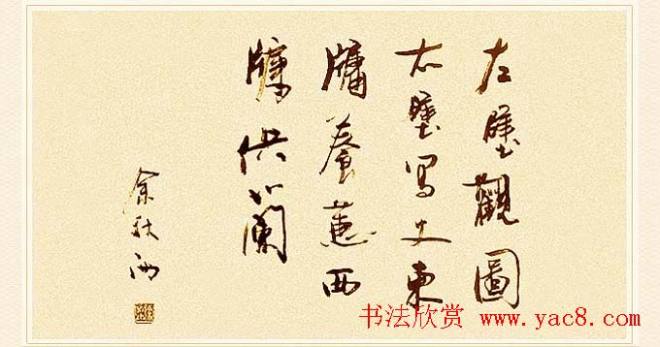 左壁觀圖
右壁写文東
牖養蕙西
牖供蘭
余秋雨
书法欣赏 www.yac8.com